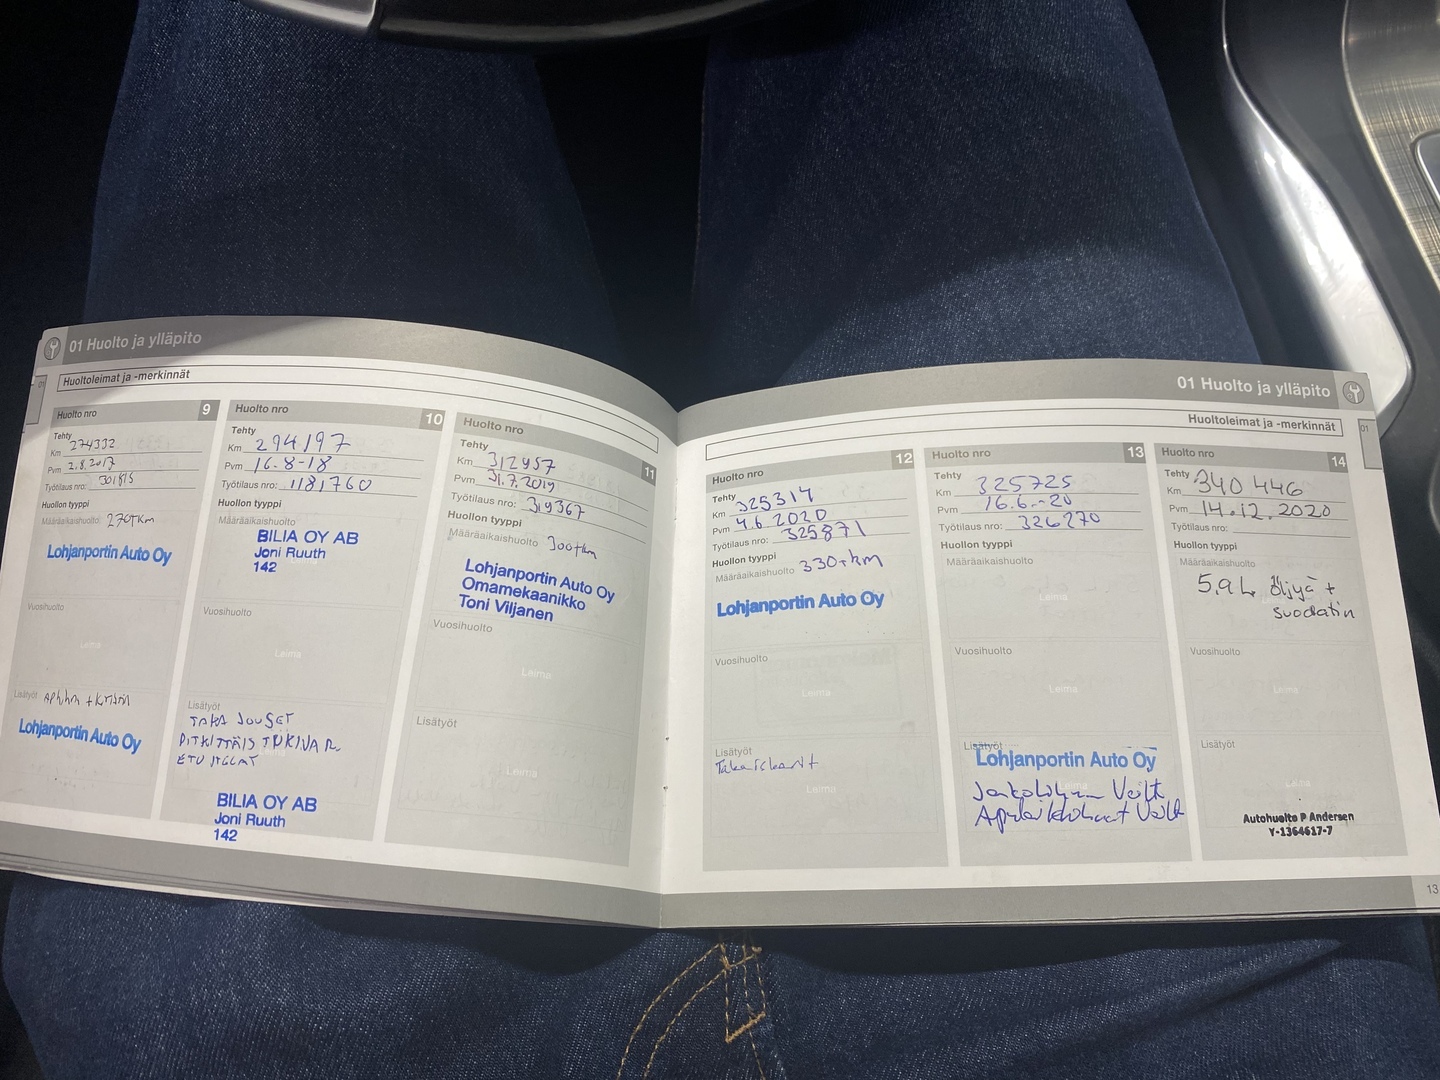 01 Huolto ja ylläpito
01
Huoltoleimat ja -merkinnät
Huolto nro 9
Tehty
Km 274332
Pvm 2.8.2017
Työtilaus nro: 301815
Huollon tyyppi
Määräaikaishuolto 270Tkm
Lohjanportin Auto Oy
Vuosihuolto
Leima
Lisätyöt
Lohjanportin Auto Oy
Huolto nro 10
Tehty
Km 294197
Pvm 16.8-18
Työtilaus nro: 1181760
Huollon tyyppi
Määräaikaishuolto
BILIA OY AB
Joni Ruuth
142
Vuosihuolto
Leima
Lisätyöt
TAKA JOUSET
PITKITTÄIS TUKIVAR.
ETU
BILIA OY AB
Joni Ruuth
142
Huolto nro 11
Tehty
Km 312957
Pvm 31.7.2019
Työtilaus nro: 319367
Huollon tyyppi
Määräaikaishuolto 300tkm
Lohjanportin Auto Oy
Omamekaanikko
Toni Viljanen
Vuosihuolto
Leima
Lisätyöt
Leima
01 Huolto ja ylläpito
01
Huoltoleimat ja -merkinnät
Huolto nro 12
Tehty
Km 325314
Pvm 4.6.2020
Työtilaus nro: 325871
Huollon tyyppi
Määräaikaishuolto 330tkm
Lohjanportin Auto Oy
Vuosihuolto
Leima
Lisätyöt
Leima
Huolto nro 13
Tehty
Km 325725
Pvm 16.6.-20
Työtilaus nro: 326270
Huollon tyyppi
Määräaikaishuolto
Leima
Vuosihuolto
Leima
Lisätyöt
Lohjanportin Auto Oy
Leima
Jakohihna Veiht
Apulaitehihnat Veiht
Huolto nro 14
Tehty
Km 340 446
Pvm 14.12.2020
Työtilaus nro:
Huollon tyyppi
Määräaikaishuolto
5,9 L öljyä +
suodatin
Vuosihuolto
Leima
Lisätyöt
Leima
Autohuolto P Andersen
Y-1364617-7
13